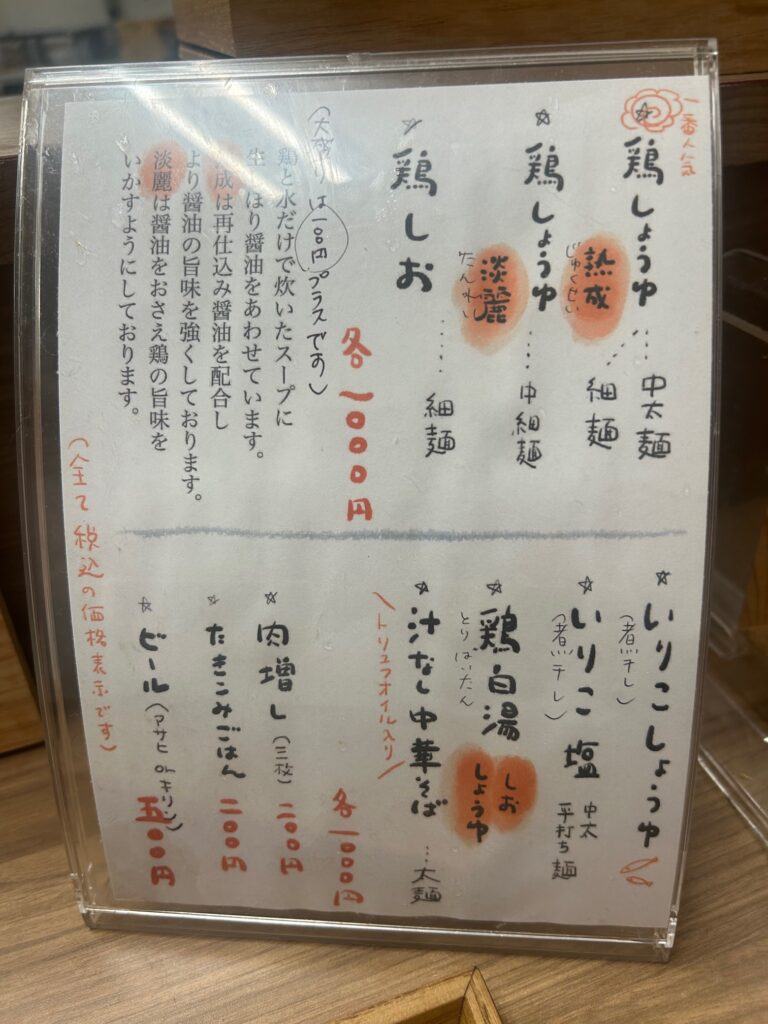 一番人気
☆鶏しょうゆ…中太麺
熟成
じゅくせい
…細麺
☆鶏しょうゆ…中細麺
淡麗
たんれい
☆鶏しお……細麺
各一〇〇〇円
(大盛りは一〇〇円プラスです)
鶏と水だけで炊いたスープに
ほり醤油をあわせています。
成は再仕込み醤油を配合し
より醤油の旨味を強くしております。
淡麗は醤油をおさえ鶏の旨味を
いかすようにしております。
☆いりこしょうゆ
(煮干し)
☆いりこ塩
(煮干し)
中太
平打ち麺
☆鶏白湯
とりぱいたん
しお
しょうゆ
☆汁なし中華そば…太麺
\トリュフオイル入り/
各一〇〇〇円
☆肉増し(三枚)二〇〇円
☆たきこみごはん二〇〇円
☆ビール(アサヒorキリン)五〇〇円
(全て税込の価格表示です)